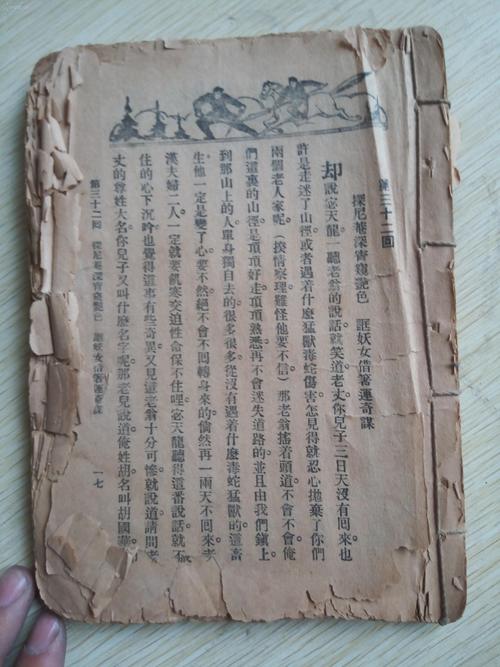 第三十二回
探尼菴深宵窺艷色　誆妖女借箸運奇謀
却說宓天龍一聽老翁的說話就笑道老丈你兒子三日天沒有回來也
許是走迷了山徑或者遇着什麼猛獸毒蛇傷害怎見得就忍心拋棄了你們
兩個老人家呢（揆情察理難怪他要不信）那老翁搖着頭道不會不會俺
們這裏的山徑是頂頂好走頂頂熟悉再不會迷失道路的並且由我們鎭上
到那山上的人單身獨自去的很多很多從沒有遇着什麼毒蛇猛獸的這畜
生他一定是變了心要不然絕不會不回轉身來的倘然再一兩天不回來老
漢夫婦二人一定就要飢寒交迫性命保不住哩宓天龍聽得這番說話就不
住的心下沉吟也覺得這事有些奇異又見這老翁十分可慘就說道請問老
丈的尊姓大名你兒子又叫什麼名字呢那老兒說道俺姓胡名叫胡國
第三十二回　探尼菴深宵窺艷色　誆妖女借箸運奇謀
一七